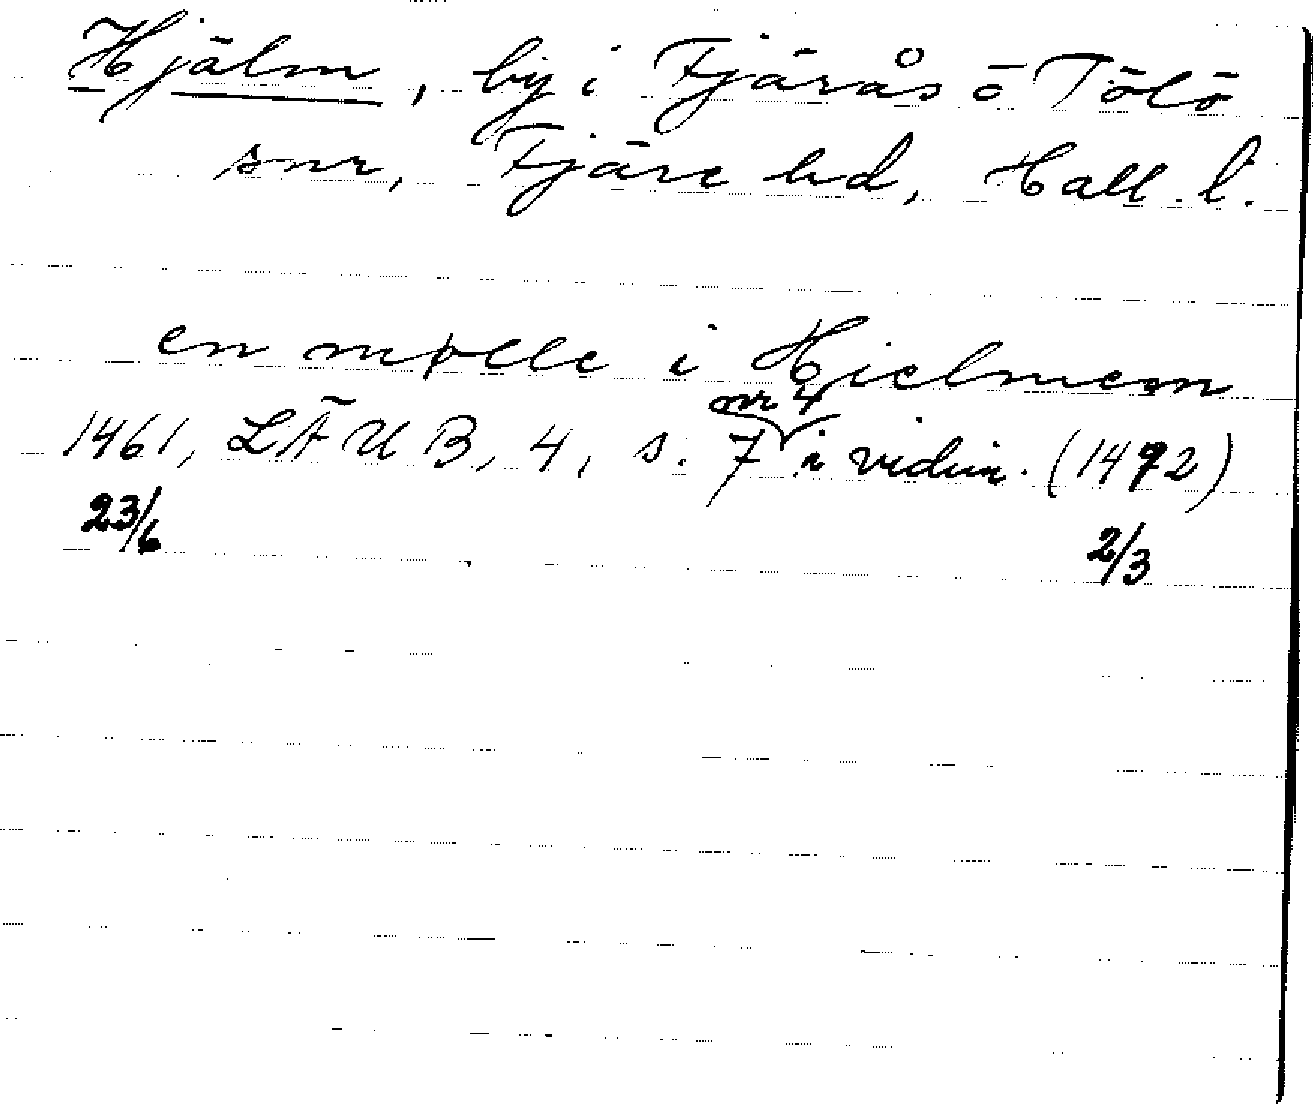 Hjälm, by i Fjärås o Tölö
snr, Fjäre hd, Hall. l.
en mølle i Hielmem
nr 4
1461, LÄUB, 4, s. 7 i vidim. (1492)
23/6 2/3